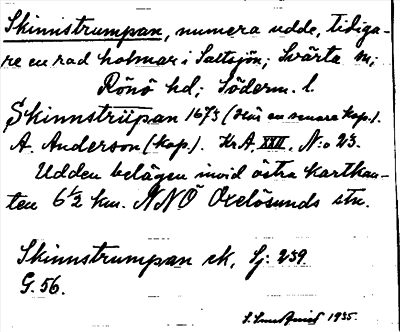 Skinnstrumpan, numera udde, tidiga-
re en rad holmar i Saltsjön; Svärta sn;
Rönö hd; Söderm. l.
Skinnstrüpan 1673 (här en senare kop.).
A. Anderson (kop). KrA. XXII, N:o 23.
Udden belägen invid östra kartkan-
ten 6 1/2 km. NNÖ Oxelösunds stn.
Skinnstrumpan ek, Sj: 239
G. 56.
1935.